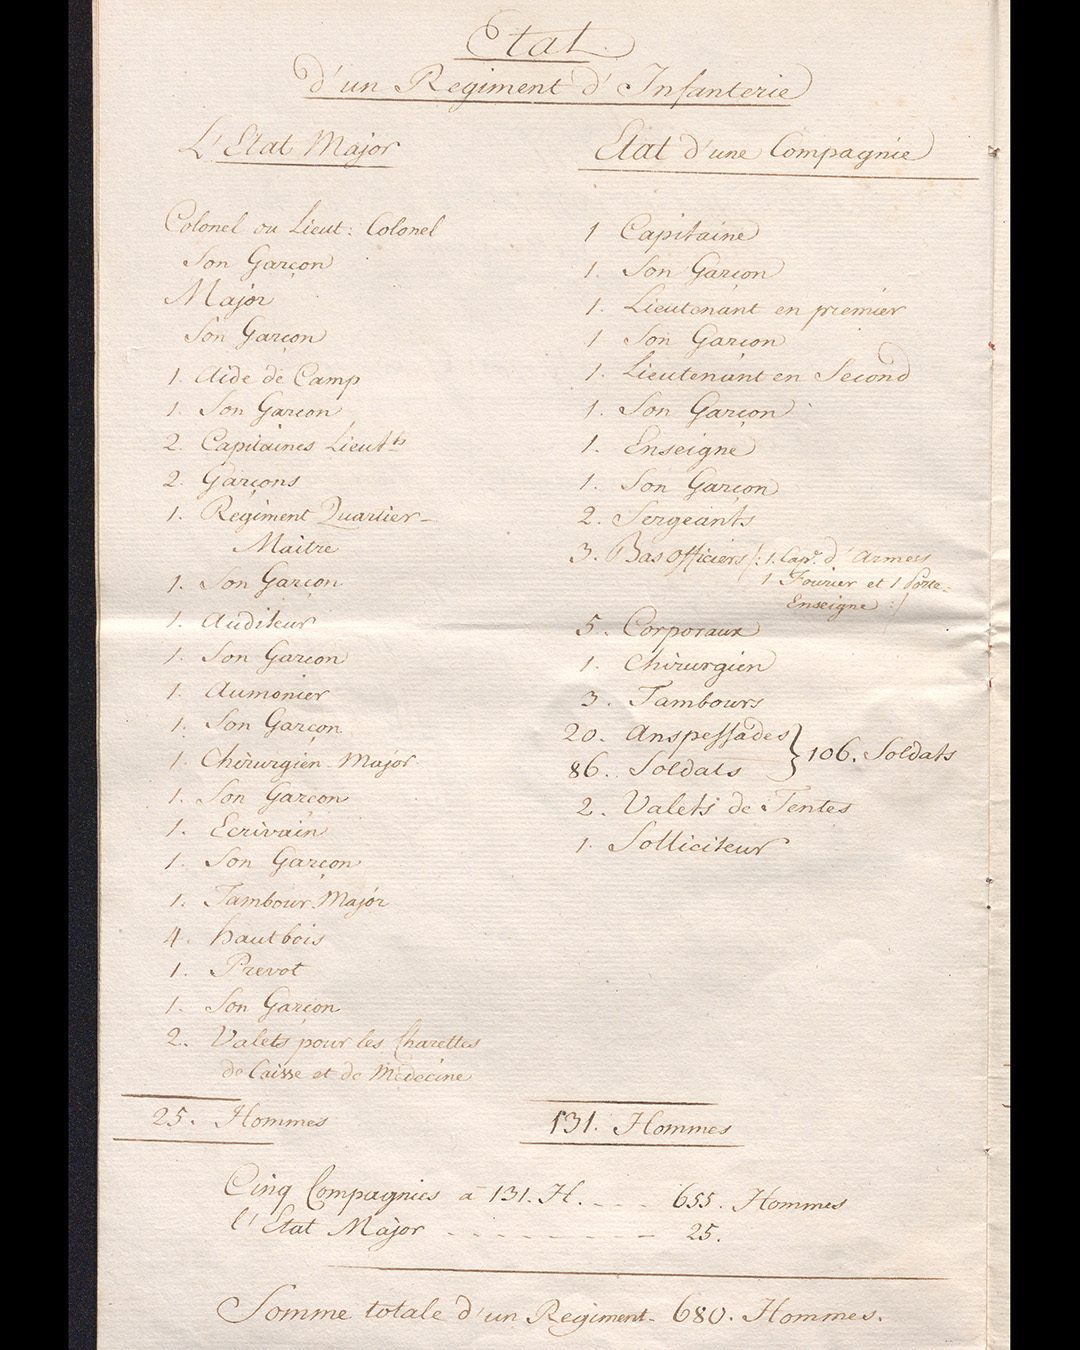 Etat
d'un Regiment d'Infanterie
L'Etat Major
Colonel ou Lieut: Colonel
Son Garçon
Major
Son Garçon
1. Aide de Camp
1. Son Garçon
2. Capitaines Lieutts
2. Garçons
1. Regiment Quartier-
Maitre
1. Son Garçon
1. Auditeur
1. Son Garçon
1. Aumonier
1. Son Garçon
1. Chirurgien-Major
1. Son Garçon
1. Ecrivain
1. Son Garçon
1. Tambour-Major
4. hautbois
1. Prevot
1. Son Garçon
2. Valets pour les Charettes
de Caisse et de Medecine
25. Hommes
Etat d'une Compagnie
1 Capitaine
1. Son Garçon
1. Lieutenant en premier
1 Son Garçon
1. Lieutenant en Second
1. Son Garçon
1. Enseigne
1. Son Garçon
2. Sergeants
3. Bas officiers /: 1. Capr. d'Armes
1 Fourier et 1 Porte-
Enseigne :/
5. Corporaux
1. Chirurgien
3. Tambours
20. Anspessades } 106. Soldats
86. Soldats
2. Valets de Tentes
1. Solliciteur
131. Hommes
Cinq Compagnies a 131. H. - - - - 655. Hommes
l'Etat Major - - - - - - - - - 25.
Somme totale d'un Regiment- 680. Hommes.